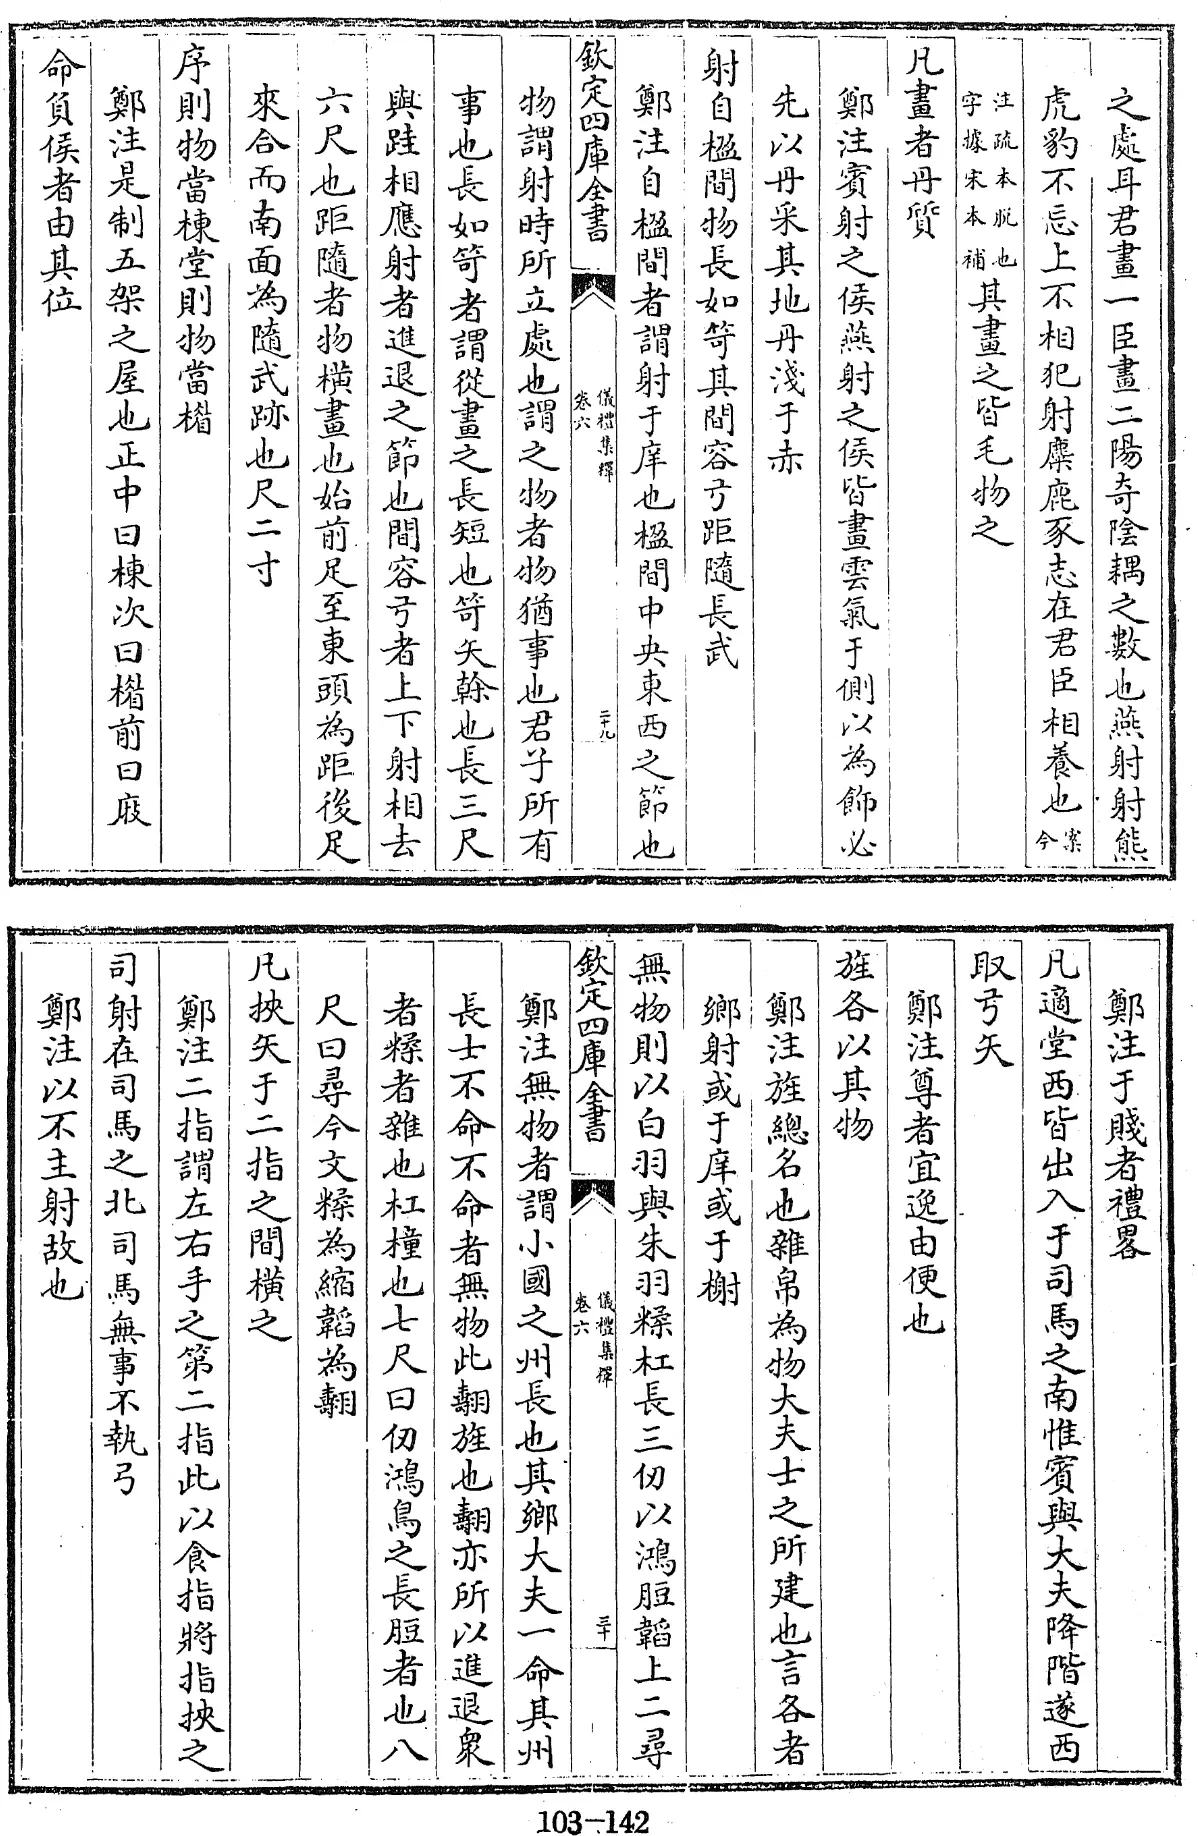 之處耳君畫一臣畫二陽奇陰耦之數也燕射射熊
虎豹不忘上下相犯射麋鹿豕志在君臣相養也案今
注疏本脫也字據宋本補其畫之皆毛物之
凡畫者丹質
鄭注賓射之侯燕射之侯皆畫雲氣于側以為飾必
先以丹采其地丹淺于赤
射自楹間物長如笴其間容弓距隨長武
鄭注自楹間者謂射于庠也楹間中央東西之節也
欽定四庫全書
儀禮集釋
卷六
二十九
物謂射時所立處也謂之物者物猶事也君子所有
事也長如笴者謂從畫之長短也笴矢榦也長三尺
與跬相應射者進退之節也間容弓者上下射相去
六尺也距隨者物橫畫也始前足至東頭為距後足
來合而南面為隨武跡也尺二寸
序則物當棟堂則物當楣
鄭注是制五架之屋也正中曰棟次曰楣前曰庪
命負侯者由其位
鄭注于賤者禮畧
凡適堂西皆出入于司馬之南惟賓與大夫降階遂西
取弓矢
鄭注尊者宜逸由便也
旌各以其物
鄭注旌總名也雜帛為物大夫士之所建也言各者
鄉射或于庠或于榭
無物則以白羽與朱羽糅杠長三仞以鴻脰韜上二尋
欽定四庫全書
儀禮集釋
卷六
三十
鄭注無物者謂小國之州長也其鄉大夫一命其州
長士不命不命者無物此翿旌也翿亦所以進退衆
者糅者雜也杠橦也七尺曰仞鴻鳥之長脰者也八
尺曰尋今文糅為縮韜為翿
凡挾矢于二指之間橫之
鄭注二指謂左右手之第二指此以食指將指挾之
司射在司馬之北司馬無事不執弓
鄭注以不主射故也
103-142